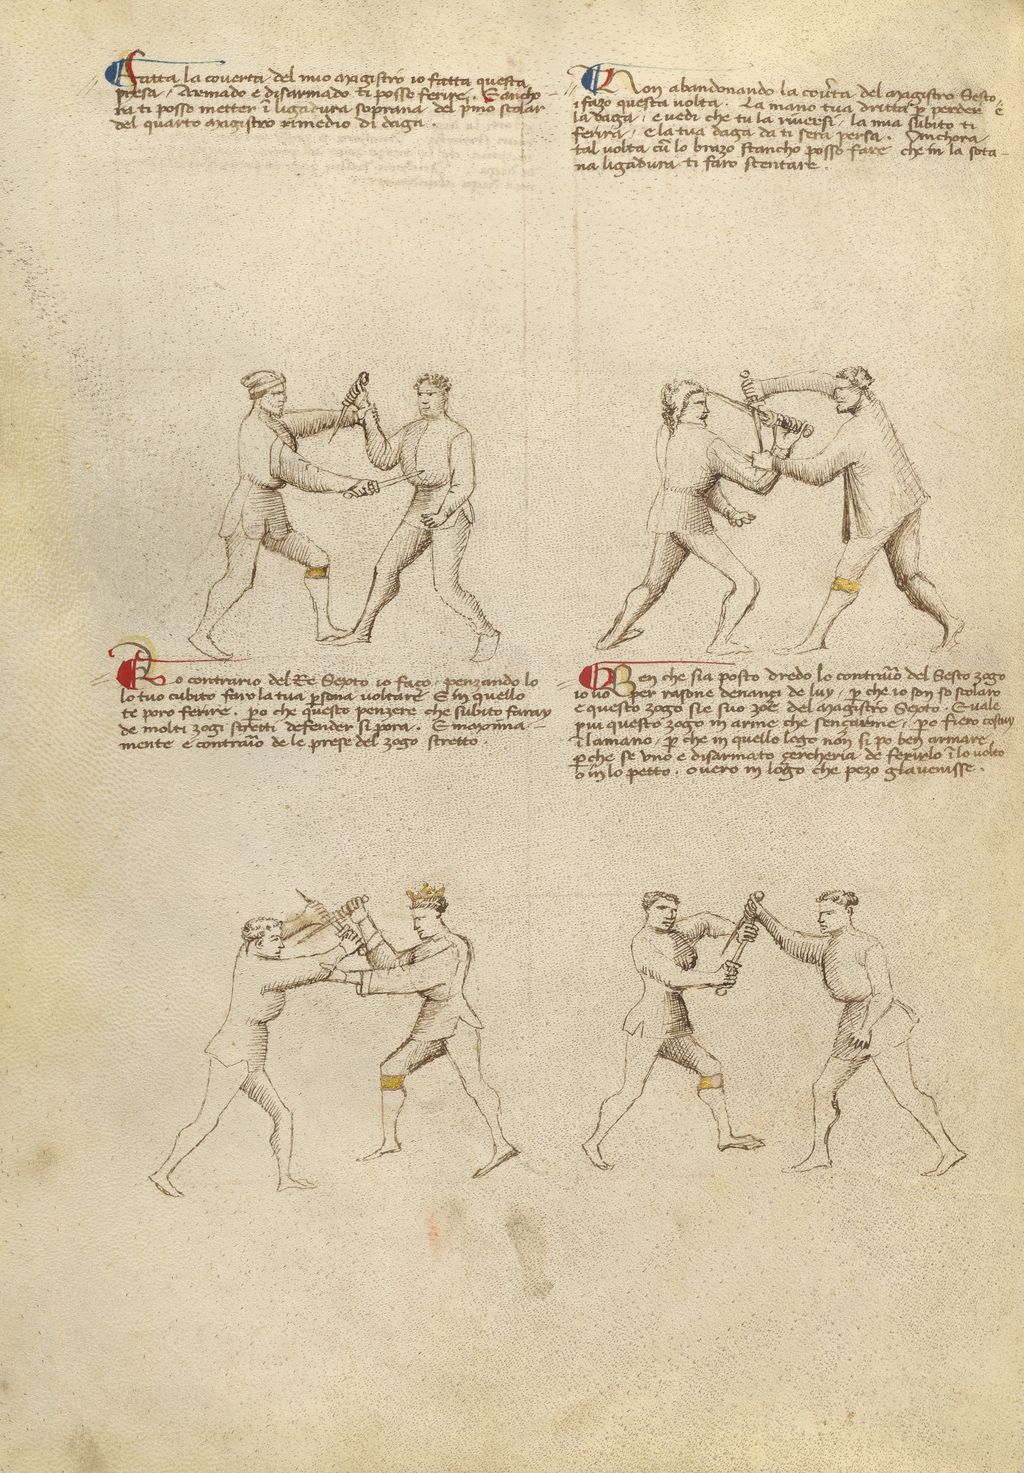 Fatta la coverta del mio magistro io fatta questa
presa / Armado e disarmado ti posso ferire . E ancho-
ra ti posso metter ī ligadura soprana del pm̄o scolar
del quarto magistro rimedio di daga .
Non abandonando la cov̄ta del magistro Sesto
i fazo questa volta . La mano tua dritta p perder è
la daga / e vedi che tu la riversi / la mia subito ti
ferira / e la tua daga da ti sera persa . Anchora
tal volta cū lo brazo stancho posso fare che in la sota-
na ligadura ti faro stentare .
Lo contrario del Re Sexto io faço / penzando lo
lo tuo cubito farò la tua psona voltare E in quello
te poro ferire . po che questo penzere che subito faray
de molti zogi stretti defender si pora . E maxima-
mente e contrariō de le prese del zogo stretto .
Ben che sia posto dredo lo contrariō del Sesto zogo
io vo per rasone denançi de luy / p che io son so scolaro
e questo zogo sie suo zoè del magistro Sexto . E vale
piu questo zogo in arme che sençarme / po fiero costuy
ī la mano / p che in quello logo non si po ben armare /
p che se uno e disarmato çercheria de ferirlo ī lo volto
o in lo petto . overo in logo che pezo gl avenisse .